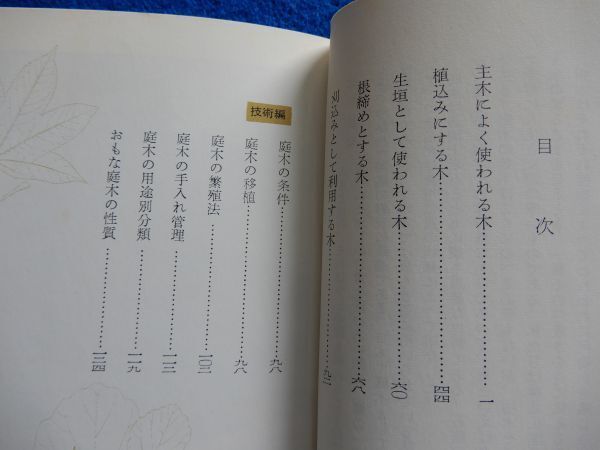 目次
主木によく使われる木……………………一
植込みにする木……………………四四
生垣として使われる木……………………六〇
根締めとする木……………………六八
刈込みとして利用する木……………………九二
技術編
庭木の条件……………………九八
庭木の移植……………………九八
庭木の繁殖法……………………一〇三
庭木の手入れ管理……………………一一三
庭木の用途別分類……………………一一九
おもな庭木の性質……………………一三四